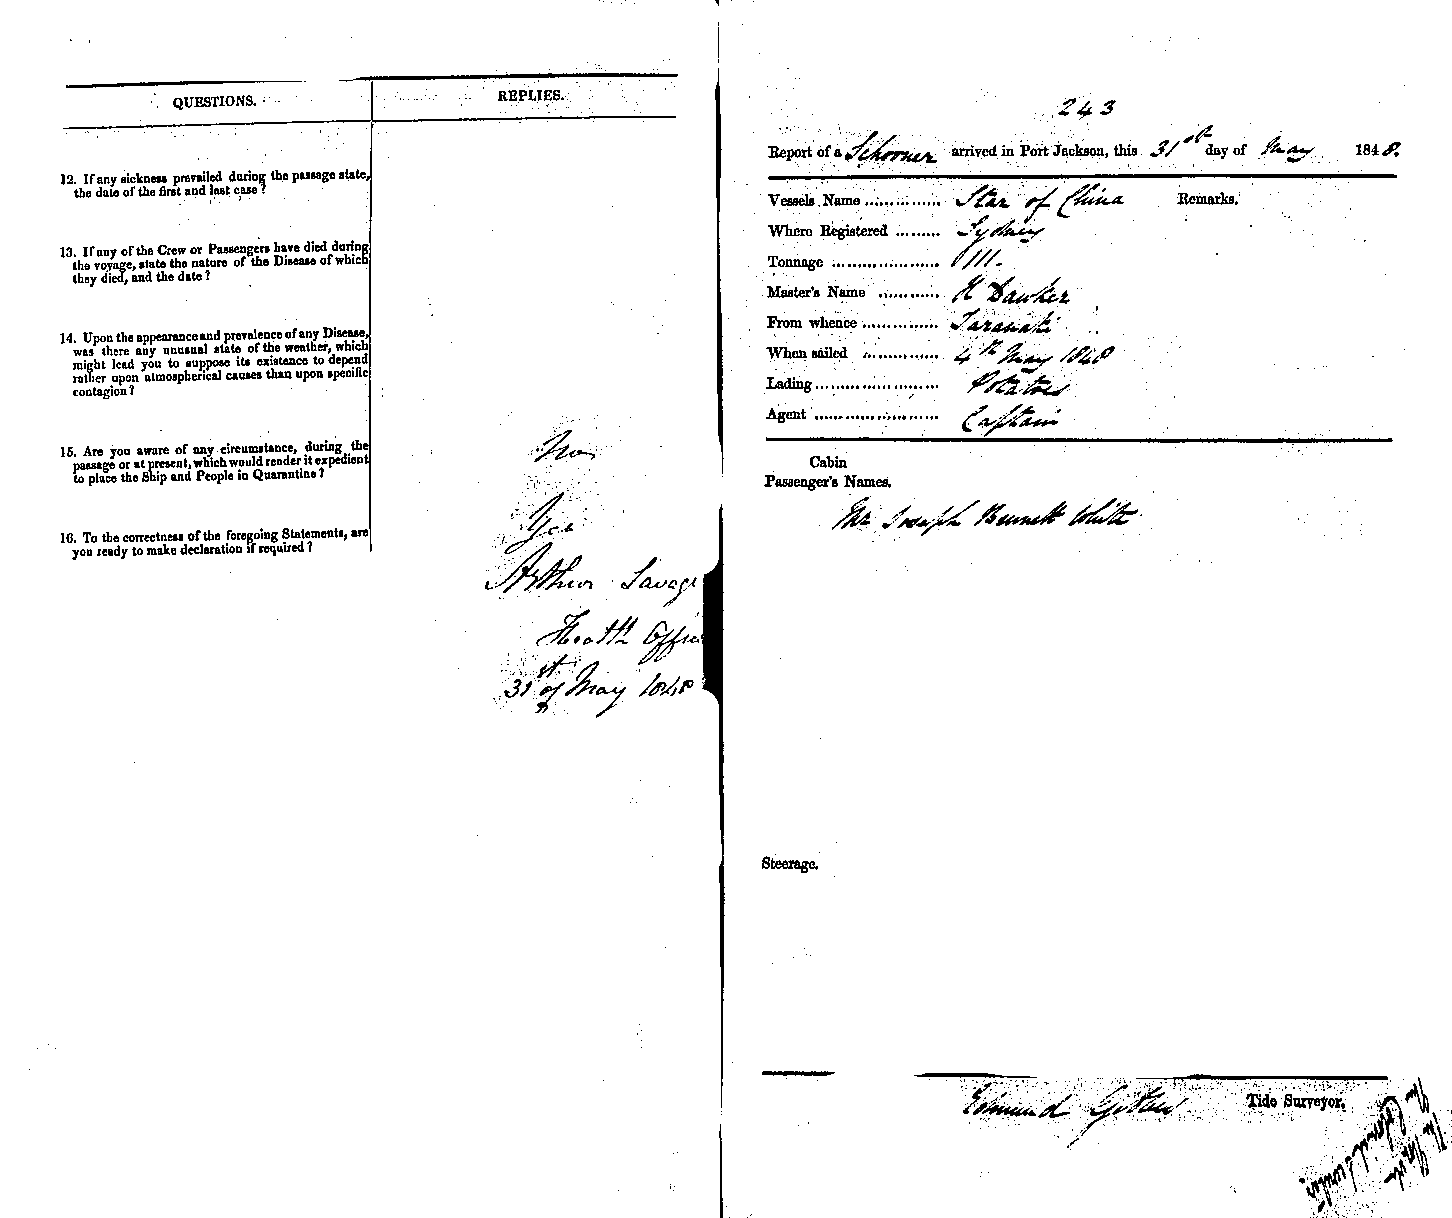 QUESTIONS.
REPLIES.
12. If any sickness prevailed during the passage state,
the date of the first and last case ?
13. If any of the Crew or Passengers have died during
the voyage, state the nature of the Disease of which
they died, and the date ?
14. Upon the appearance and prevalence of any Disease,
was there any unusual state of the weather, which
might lead you to suppose its existence to depend
rather upon atmospherical causes than upon specific
contagion ?
15. Are you aware of any circumstance, during the
passage or at present, which would render it expedient
to place the Ship and People in Quarantine ?
No
16. To the correctness of the foregoing Statements, are
you ready to make declaration if required ?
Yes
Arthur Savage
Health Offic
31st of May 1848
243
Report of a Schooner arrived in Port Jackson, this 31st day of May 1848.
Vessels Name .............. Star of China Remarks.
Where Registered ......... Sydney
Tonnage ..................... 111.
Master's Name ............ H Dawker
From whence ............... Taranaki
When sailed ............... 4th May 1848
Lading ........................ Potatoes
Agent ........................ Captain
Cabin
Passenger's Names.
Mr Joseph Bennett White
Steerage.
Edmund Tide Surveyor.
The Colonial